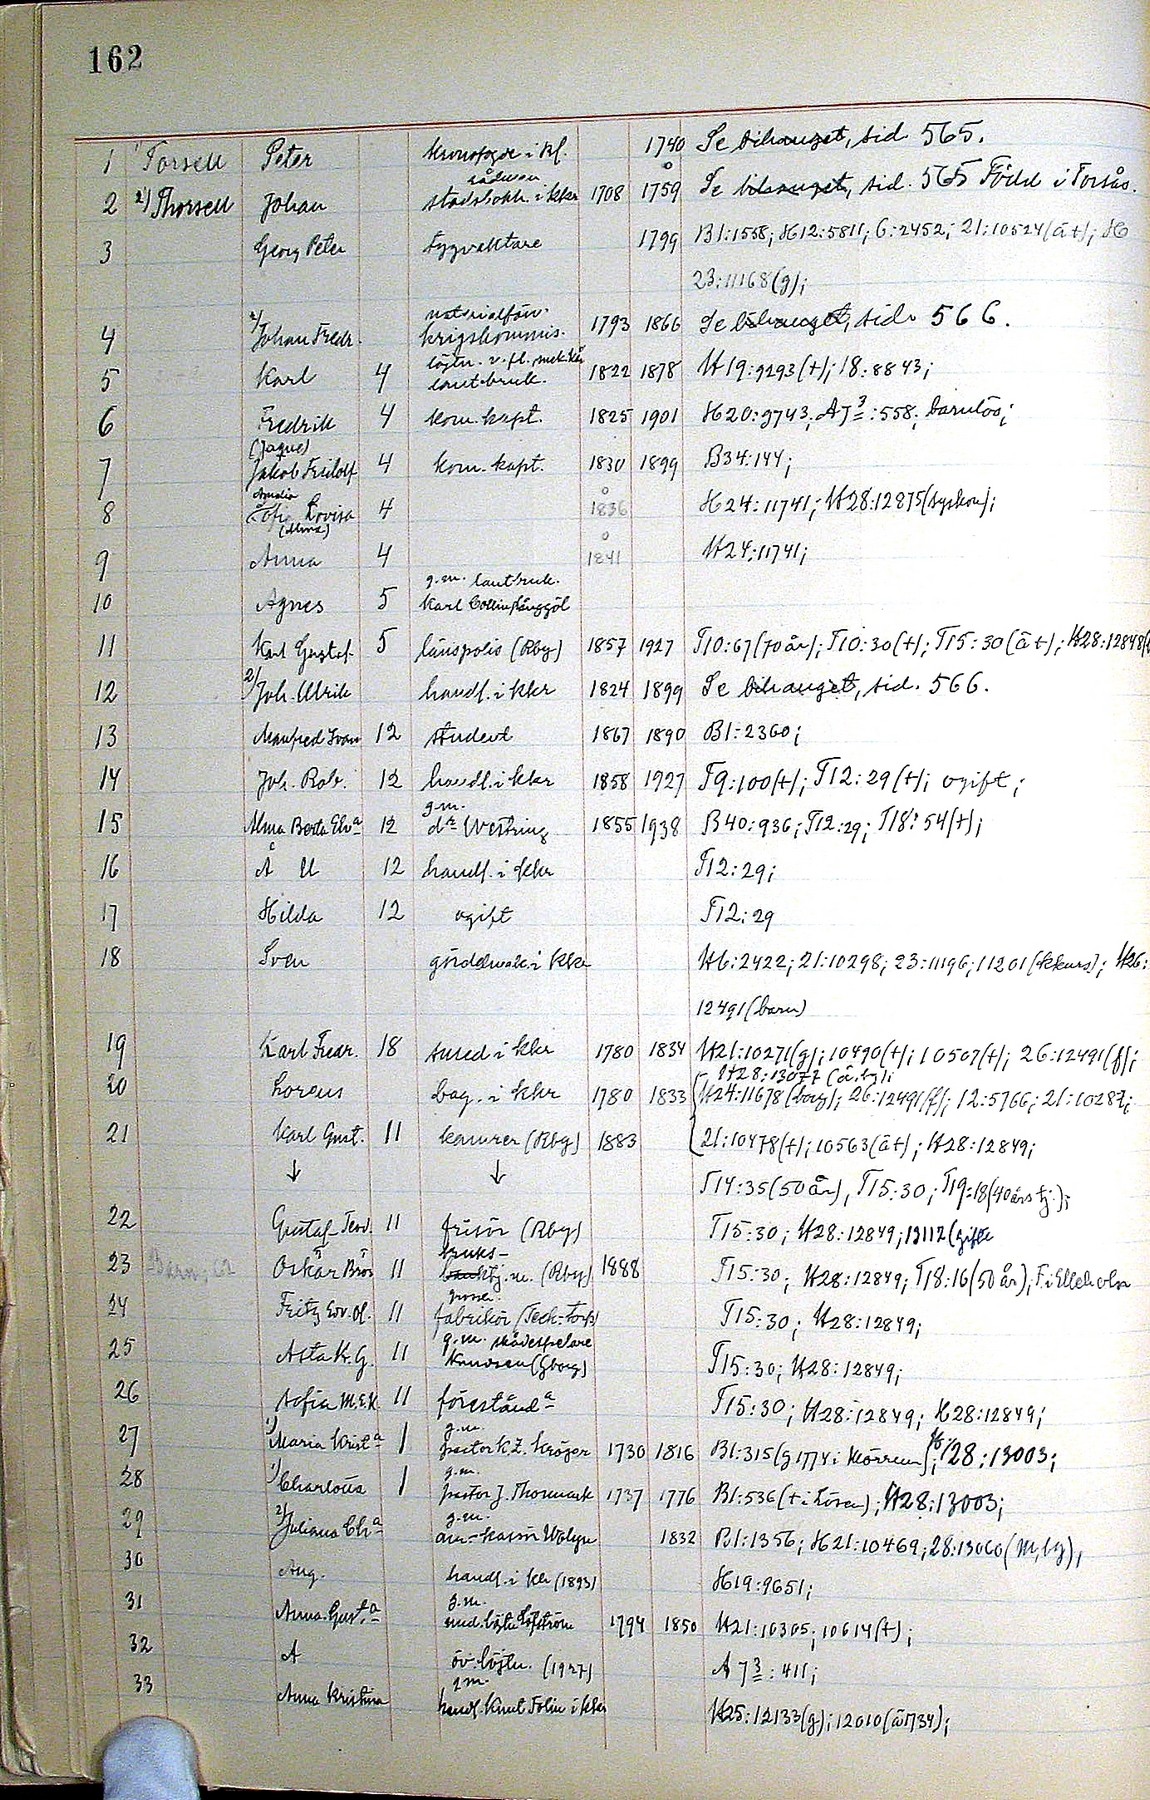 162
1 Torsell Peter kronofogde i Kf. 1740 Se bihanget, sid. 565.
rådman
2 2/ Thorsell Johan stadsbokh. i Khr 1708 1759 Se bihanget, sid. 565 Född i Torsås.
3 Georg Peter tygvaktare 1799 B1:1558; H12:5811; 6:2452; 21:10524(ä†); H
23:11168(g);
materialförv.
4 2/ Johan Fredr. krigskommis. 1793 1866 Se bihanget, sid. 566.
löjtn. v. fl. mek. kår
5 Karl 4 lantbruk. 1822 1878 H19:9293(†); 18:8843;
6 Fredrik 4 kom. kapt. 1825 1901 H20:9743; A73:558; barnlös;
(Jaque)
7 Jakob Fridolf 4 kom. kapt. 1830 1899 B34:144;
Amalia
8 Sofi Lovisa 4 1836 H24:11741; H28:12875(syskon);
9 Anna 4 1841 H24:11741;
g.m. lantbruk.
10 Agnes 5 Karl Collin
11 Karl Gustaf 5 länspolis (Rby) 1857 1927 T10:67(70 år); T10:30(†); T15:30(ä†); H28:12848
12 2/ Joh. Ulrik handl. i Khr 1824 1899 Se bihanget, sid. 566.
13 Manfred Ivan 12 student 1867 1890 B1:2360;
14 Joh. Rob. 12 handl. i Khr 1858 1927 T9:100(†); T12:29(†); ogift;
g.m.
15 Alma Berta Elva 12 dr Westring 1855 1938 B40:936; T12:29; T18:54(†);
16 Å U 12 handl. i Khr T12:29;
17 Hilda 12 ogift T12:29
18 Sven gördelmak. i Khr H6:2422; 21:10298; 23:11196; 11201(kkurs); H26:
12491(barn)
19 Karl Fredr. 18 smed i Khr 1780 1834 H21:10271(g); 10490(†); 10507(†); 26:12491(f);
H28:13077 (ä.bg);
20 Lorens bag. i Khr 1780 1833 H24:11678(borg); 26:12491(f); 12:5766; 21:10287;
21 Karl Gust. 11 kamrer (Rby) 1883 21:10478(†); 10563(ä†); H28:12849;
↓ ↓ T14:35(50 år), T15:30; T19:18(40 års tj.);
22 Gustaf Teod. 11 frisör (Rby) T15:30; H28:12849; 13112(gifte
bruks-
23 Barn, Oskar Bror 11 tj.m. (Rby) 1888 T15:30; H28:12849; T18:16(50 år); F. i Elleholm
24 Fritz Edv. Ol. 11 fabrikör T15:30; H28:12849;
g.m. skådespelare
25 Asta K.G. 11 Knudsen (Gborg) T15:30; H28:12849;
26 Sofia M.E.K. 11 föreståna T15:30; H28:12849; H28:12849;
g.m.
27 1/ Maria Krista 1 pastor K.Z. Kröger 1730 1816 B1:315(g 1774 i Mörrum); H28:13003;
g.m.
28 1/ Charlotta 1 pastor J. Thormark 1737 1776 B1:536(† i Lösen); H28:13003;
g.m.
29 2/ Juliana Cha 1832 B1:1356; H21:10469; 28:13060(m, bg),
30 Aug. handl. i Khr (1893) H19:9651;
g.m.
31 Anna Gusta und. löjtn. Löfström 1794 1850 H21:10305; 10614(†);
32 A öv. löjtn. (1927) A73:411;
g.m.
33 Anna Kristina handl. Knut Folin i Khr H25:12133(g); 12010(ä1734);